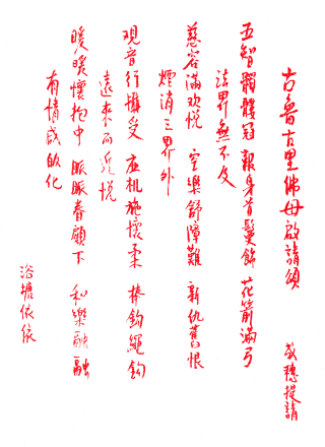 古魯古里佛母啟請頌
敬穗提請
五智髑髏冠 報身首髮飾 花箭滿弓
法界無不及
慈容滿欢悅 空樂舒障難 新仇舊恨
煙消三界外
观音行攝受 应机施懷柔 棒鈎繩鈎
遠來而近悅
暖暖懷抱中 眽眽眷顧下 和樂融融
有情咸皈化
浴塘依依